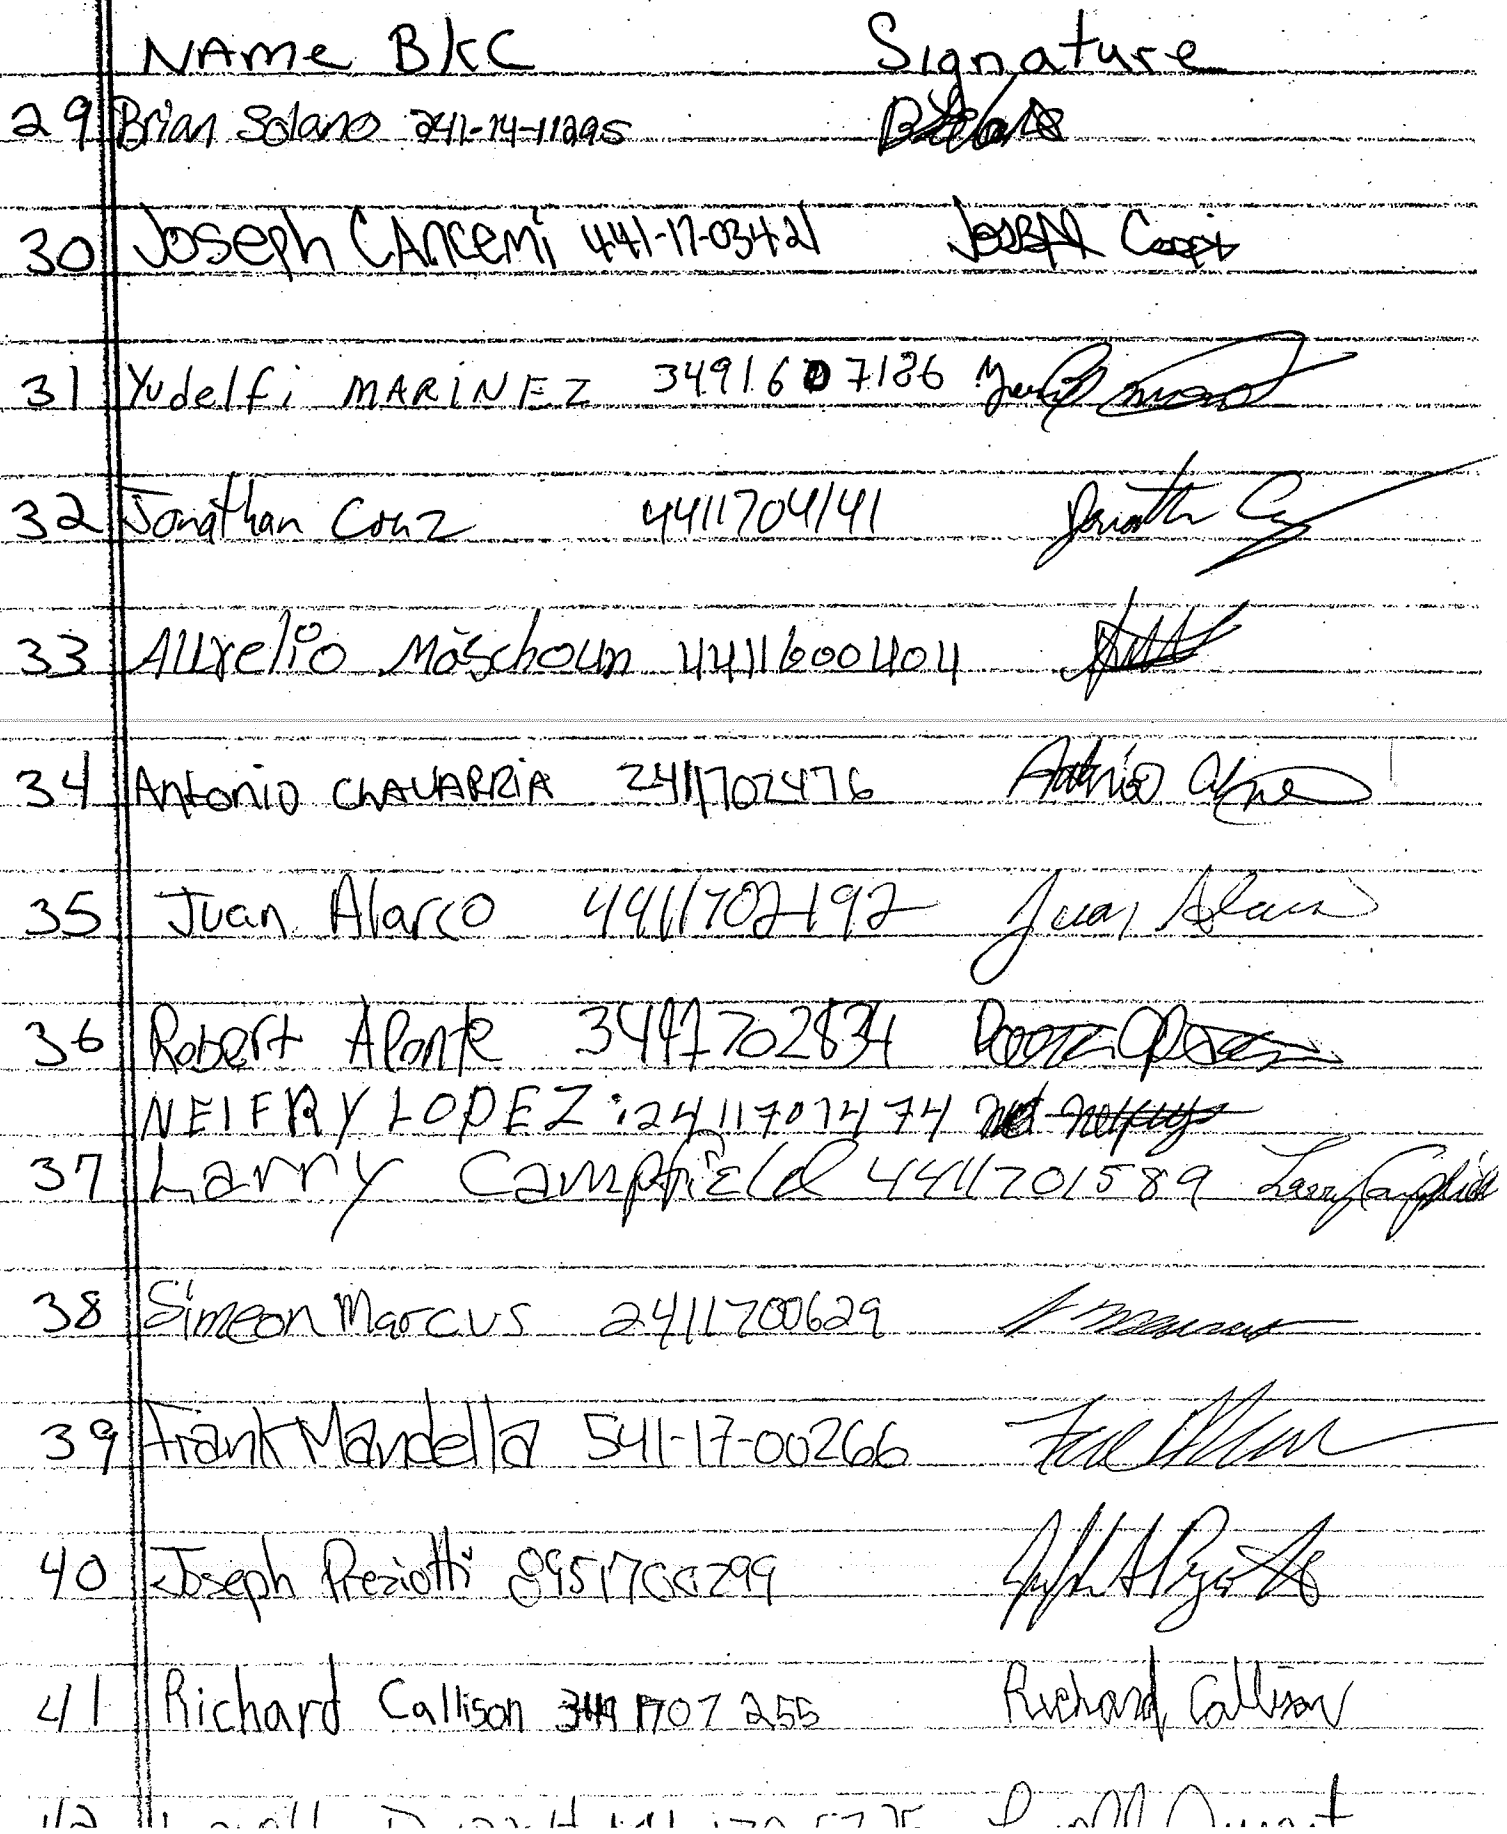 NAMe BKC Signature
29 Brian Solano 241-14-11295
30 Joseph CAncemi 441-17-03421
31 Yudelfi MARiNEZ 3491607186
32 Jonathan Cruz 4411704141 Jonathan Cruz
33 Aurelio 4411600404
34 Antonio CHAVARRIA 2411702476 Antonio
35 Juan Alarco 4411702192 Juan Alarco
36 Robert Aponte 3491702834
NEIFRY LOPEZ: 2411701474
37 Larry Campfield 4411701589 Larry Campfield
38 Simeon Marcus 2411700629
39 Frank Mandella 541-17-00266
40 Joseph Preziotti 8951700299
41 Richard Callison 3491707255 Richard Callison